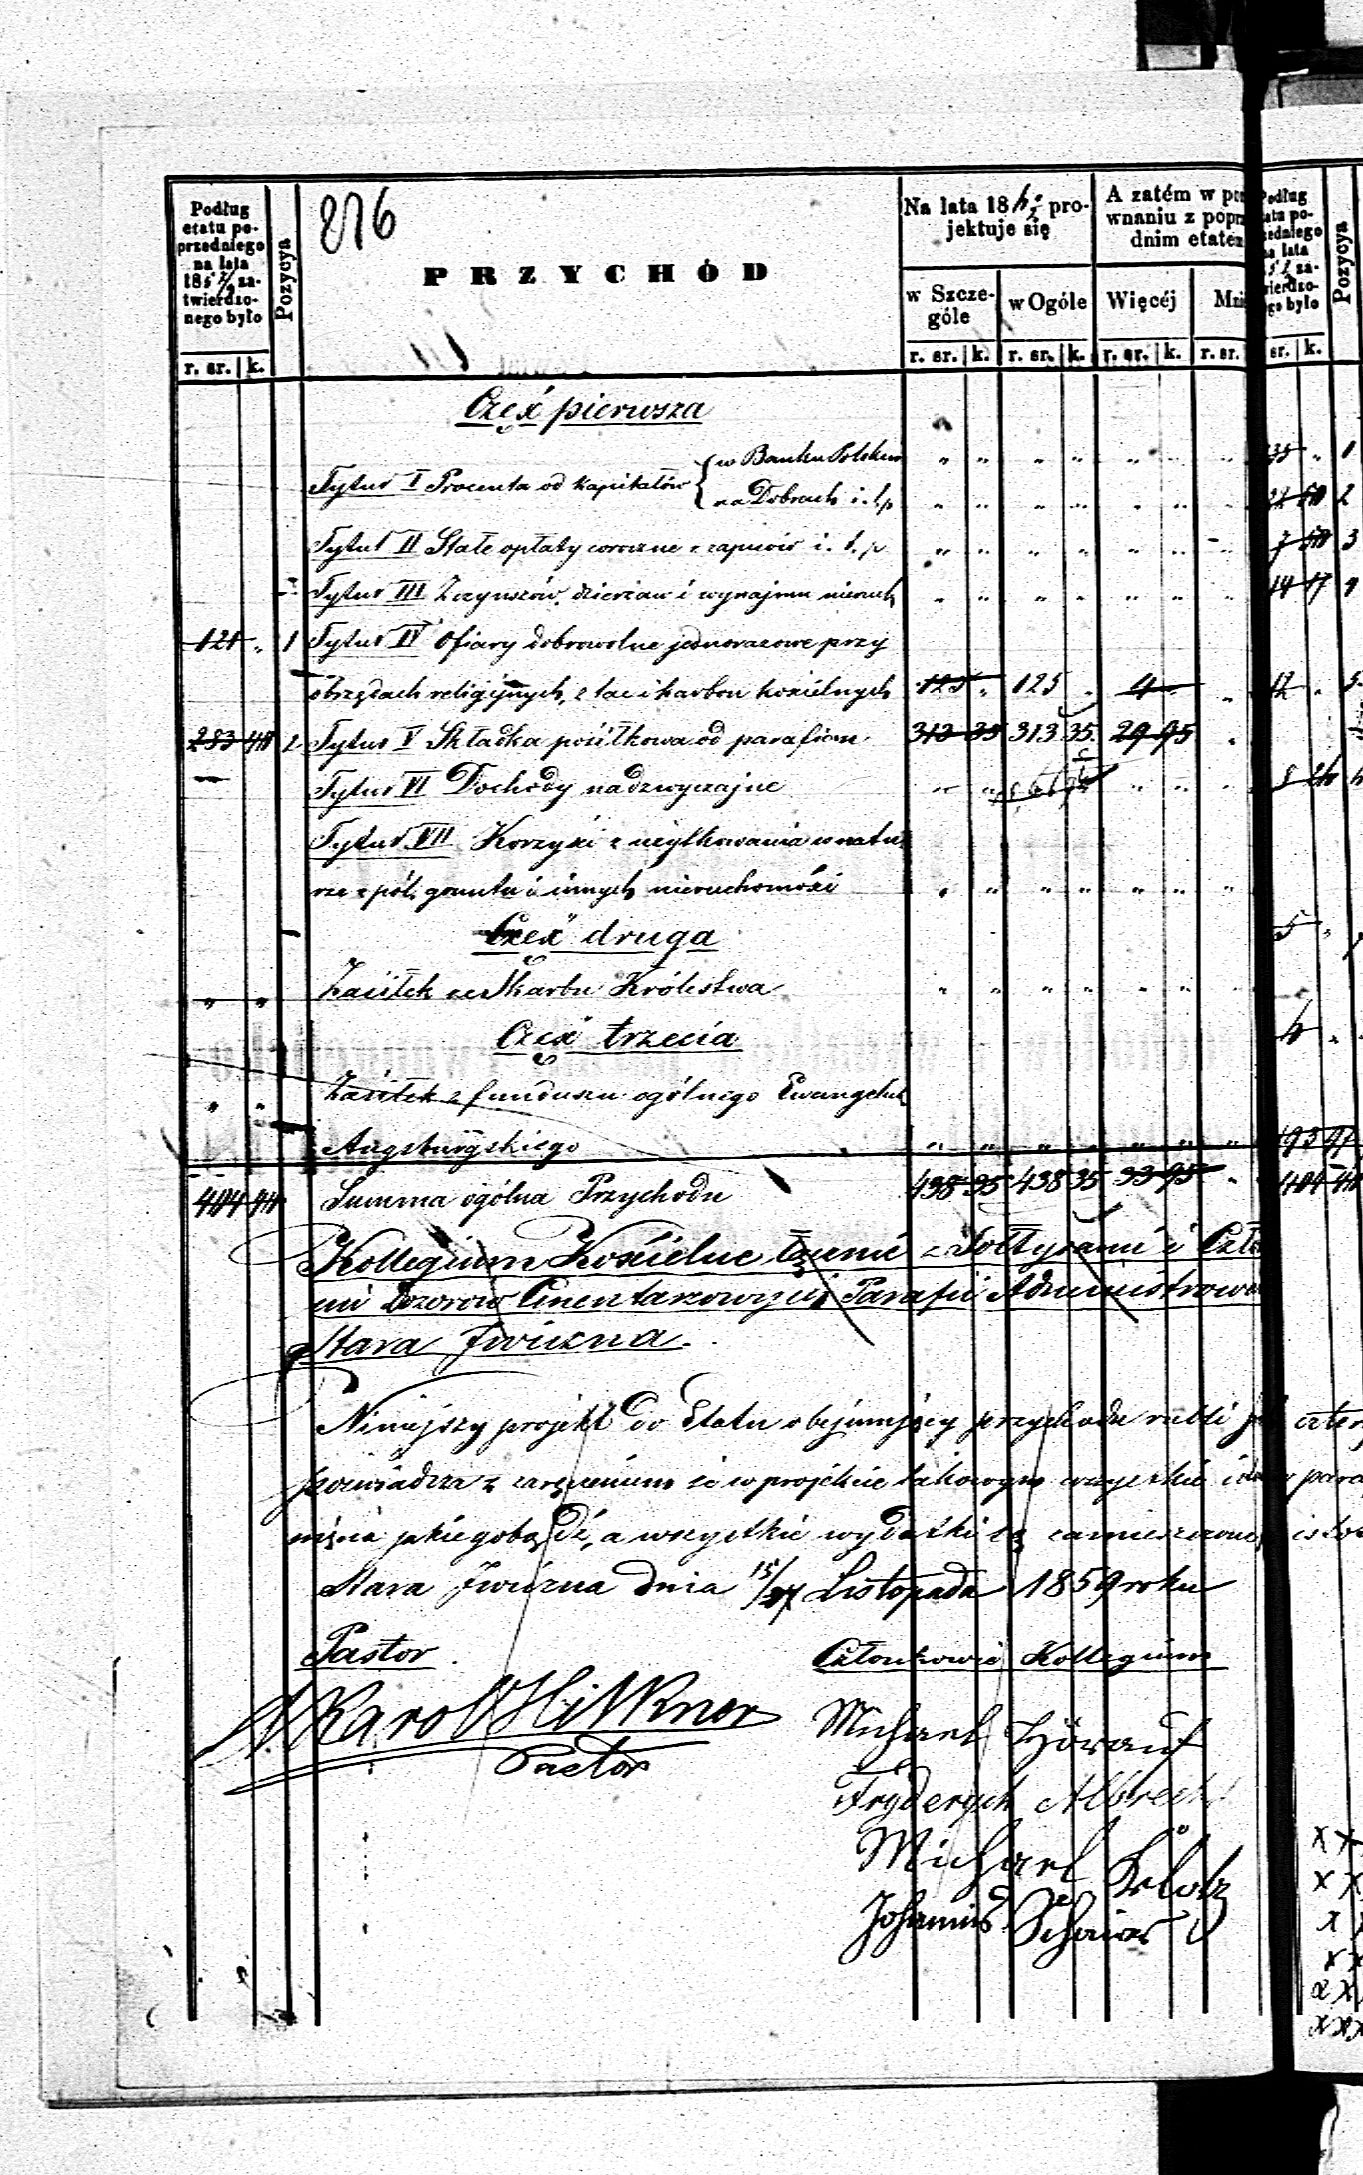 876
Podług etatu poprzedniego na lata 185 7/9 zatwierdzonego było
Pozycya
PRZYCHÓD
Na lata 18 projektuje się
w Szczególe
w Ogóle
A zatém w po
wnaniu z popr
dnim etate
Więcéj
Mni
r. sr. k. r. sr. k. r. sr. k. r. sr. k. r. sr.
Część pierwsza
Tytuł I Procenta od kapitałów { w Banku Polskim
na Dobrach i. t. p
Tytuł II Stałe opłaty coroczne z zapisów i. t. p
Tytuł III Z czynszów, dzierżaw i wynajmu nieruch
121 „ 1 Tytuł IV Ofiary dobrowolne jednorazowe przy
obrzędach religijnych, z tac i karbon kościelnych 125 „ 125 „ 4 „
283 40 2 Tytuł V Składka posiłkowa od parafian 313 35 313 35 29 95
Tytuł VI Dochody nadzwyczajne
Tytuł VII Korzyści z użytkowania w natu
rze z pól, gruntu i innych nieruchomości
Część druga
Zasiłek ze Skarbu Królestwa
Część trzecia
Zasiłek z funduszu ogólnego Ewangelick
Augsburgskiego
404 40 Summa ogólna Przychodu 438 35 438 35 33 95
Kollegium Kościelne łącznie z Sołtysami i Czło
mi Dozorów Cmentarzowych Parafii Administrow
Stara Iwiczna.
Niniejszy projekt do Etatu obejmujący przychodu rubli czter
poświadcza z zaręczeniem że w projekcie takowym wszystkie para
jakiegobądź, a wszystkie wydatki są zamieszczone istot
Stara Iwiczna dnia 15/27 Listopada 1859 roku
Pastor. Członkowie Kollegium
Karol
Pastor
Michael Hörauf
Fryderych Albrecht
Michael Klotz